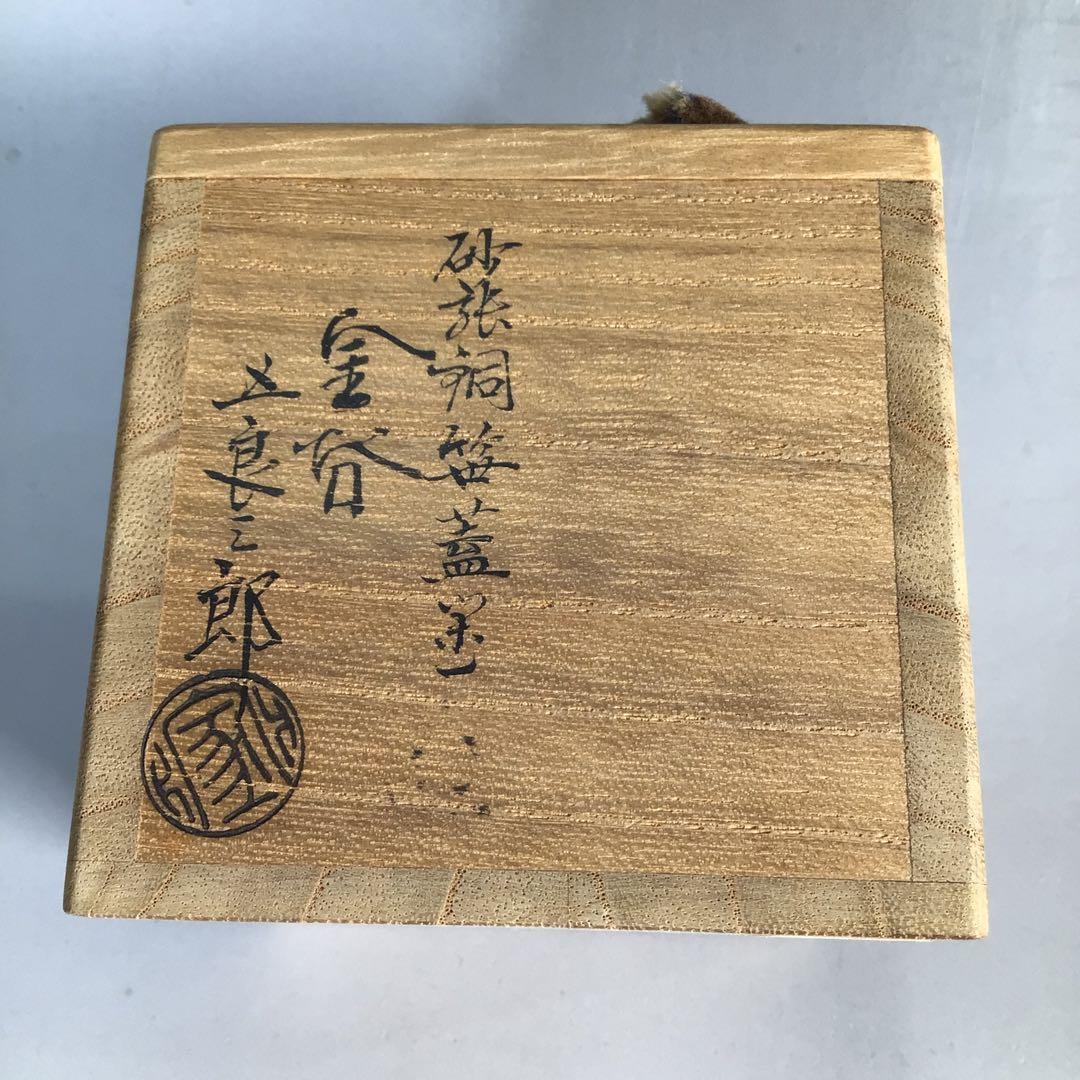 砂張銅笹蓋置
金谷
五良三郎